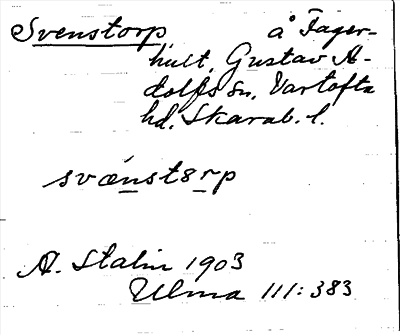 Svenstorp, å Fager-
hult, Gustav A-
dolfs sn, Vartofta
hd. Skarab. l.
svænst8rp
A. Stalin 1903
Ulma 111:383